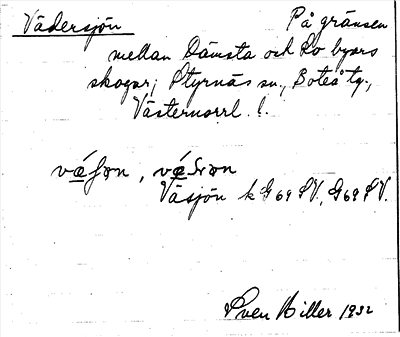 Vädersjön På gränsen
mellan Dämsta och Lo byars
skogar; Styrnäs sn., Boteå tg.,
Västernorrl. l.
Väsjön k G69 SV, G69 SV.
Sven Hiller 1932